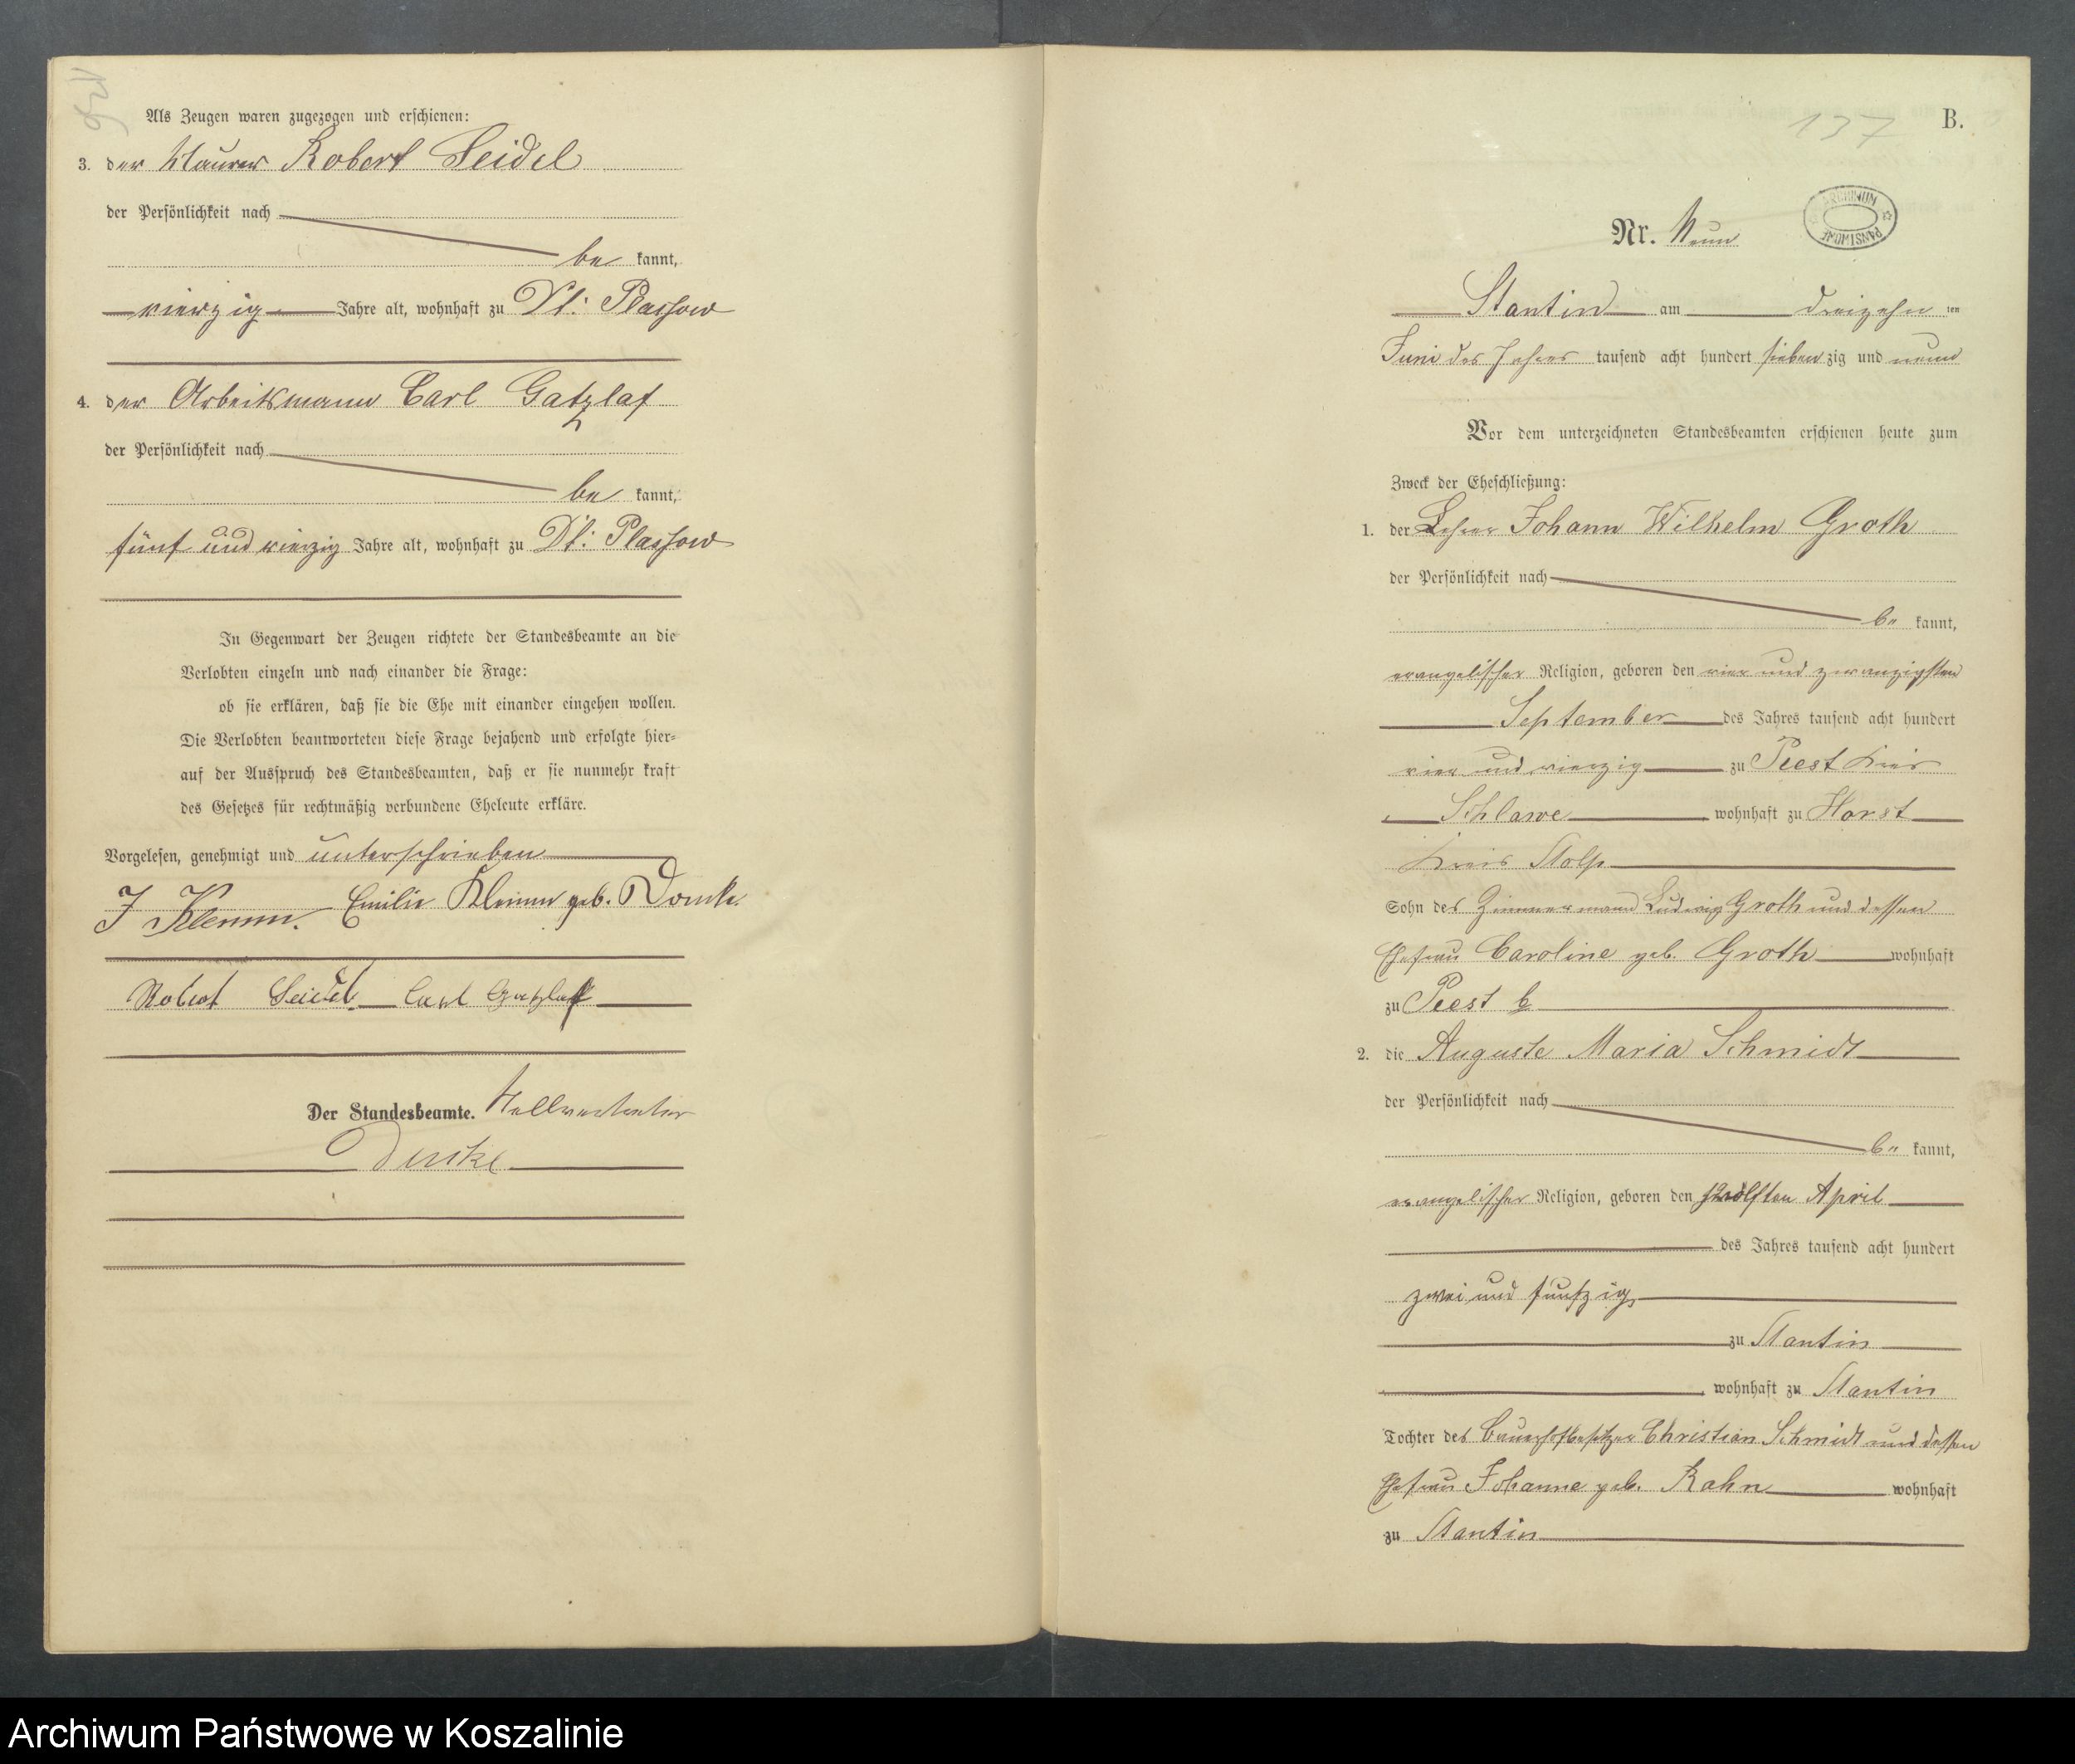 136
Als Zeugen waren zugezogen und erschienen:
3. der Maurer Robert Seidel
der Persönlichkeit nach
be kannt,
vierzig Jahre alt, wohnhaft zu Dt: Plassow
4. der Arbeitsmann Carl Gatzlaf
der Persönlichkeit nach
be kannt,
fünf und vierzig Jahre alt, wohnhaft zu Dt: Plassow
In Gegenwart der Zeugen richtete der Standesbeamte an die
Verlobten einzeln und nach einander die Frage:
ob sie erklären, daß sie die Ehe mit einander eingehen wollen.
Die Verlobten beantworteten diese Frage bejahend und erfolgte hier-
auf der Ausspruch des Standesbeamten, daß er sie nunmehr kraft
des Gesetzes für rechtmäßig verbundene Eheleute erkläre.
Vorgelesen, genehmigt und unterschrieben
J Klemm. Emilie Klemm geb. Domke.
Robert Seidel Carl Gatzlaff
Der Standesbeamte. Stellvertreter
137
B.
ARCHIWUM PAŃSTWOWE
Nr. Neun
Stantin am dreizehn ten
Juni des Jahres tausend acht hundert siebenzig und neun
Vor dem unterzeichneten Standesbeamten erschienen heute zum
Zweck der Eheschließung:
1. der Lehrer Johann Wilhelm Groth
der Persönlichkeit nach
be kannt,
evangelischer Religion, geboren den vier und zwanzigsten
September des Jahres tausend acht hundert
vier und vierzig zu Peest Kreis
Schlawe, wohnhaft zu Horst
Kreis Stolp
Sohn des Zimmermann Ludwig Groth und dessen
Ehefrau Caroline geb. Groth wohnhaft
zu Peest b
2. die Auguste Maria Schmidt
der Persönlichkeit nach
be kannt,
evangelischer Religion, geboren den zwölften April
des Jahres tausend acht hundert
zwei und funfzig
zu Stantin
, wohnhaft zu Stantin
Tochter des Bauerhofbesitzer Christian Schmidt und dessen
Ehefrau Johanne geb. Rahn wohnhaft
zu Stantin
Archiwum Państwowe w Koszalinie